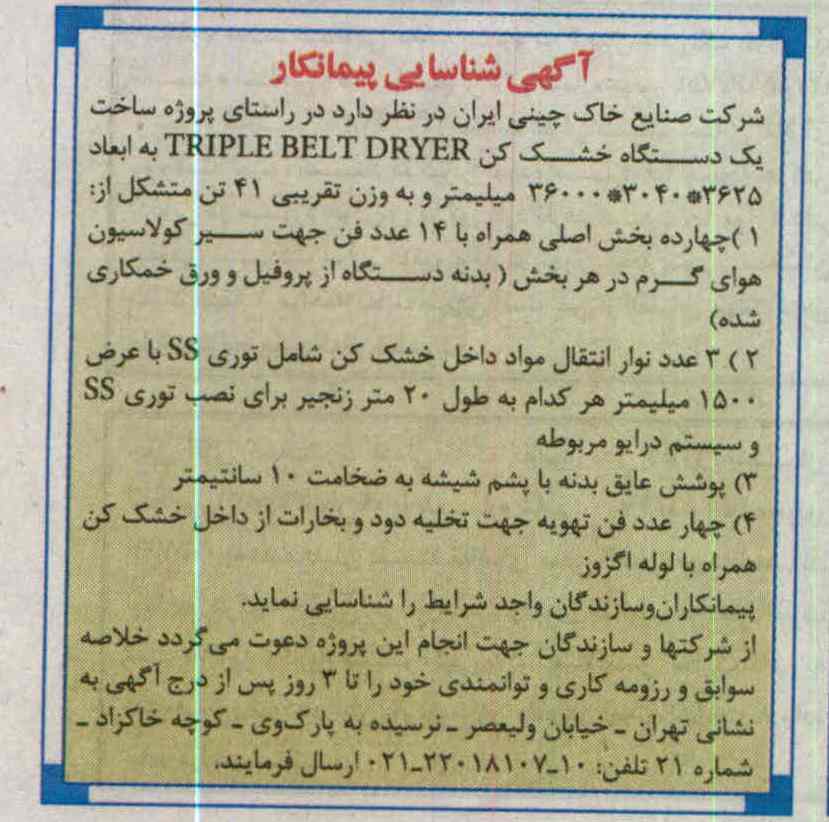 آگهی شناسایی پیمانکار
شرکت صنایع خاک چینی ایران در نظر دارد در راستای پروژه ساخت
یک دستگاه خشک کن TRIPLE BELT DRYER به ابعاد
۳۶۲۵*۳۰۴۰*۳۶۰۰۰ میلیمتر و به وزن تقریبی ۴۱ تن متشکل از:
۱ )چهارده بخش اصلی همراه با ۱۴ عدد فن جهت سیر کولاسیون
هوای گرم در هر بخش ( بدنه دستگاه از پروفیل و ورق خمکاری
شده)
۲ ) ۳ عدد نوار انتقال مواد داخل خشک کن شامل توری SS با عرض
۱۵۰۰ میلیمتر هر کدام به طول ۲۰ متر زنجیر برای نصب توری SS
و سیستم درایو مربوطه
۳) پوشش عایق بدنه با پشم شیشه به ضخامت ۱۰ سانتیمتر
۴) چهار عدد فن تهویه جهت تخلیه دود و بخارات از داخل خشک کن
همراه با لوله اگزوز
پیمانکاران‌وسازندگان واجد شرایط را شناسایی نماید.
از شرکتها و سازندگان جهت انجام این پروژه دعوت می‌گردد خلاصه
سوابق و رزومه کاری و توانمندی خود را تا ۳ روز پس از درج آگهی به
نشانی تهران ـ خیابان ولیعصر ـ نرسیده به پارک‌وی ـ کوچه خاکزاد ـ
شماره ۲۱ تلفن: ۱۰ـ۲۲۰۱۸۱۰۷ـ۰۲۱ ارسال فرمایند.